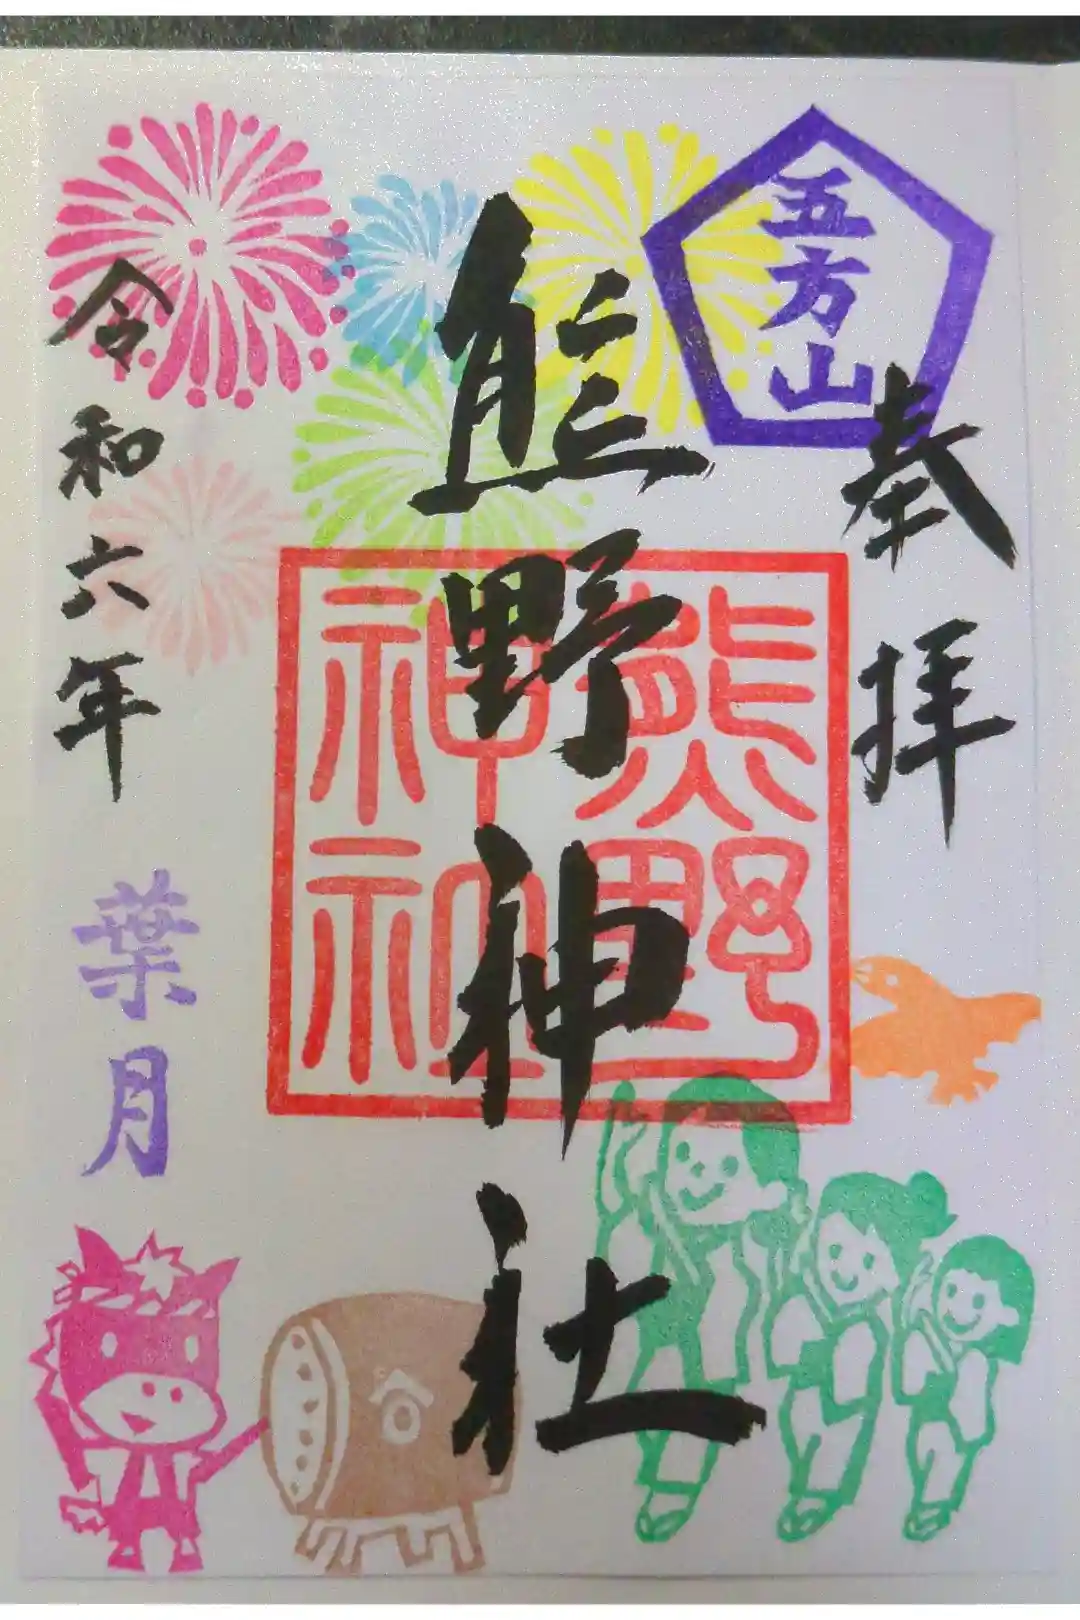 五方山
奉拝
熊野神社
熊野
神社
令和六年
葉月